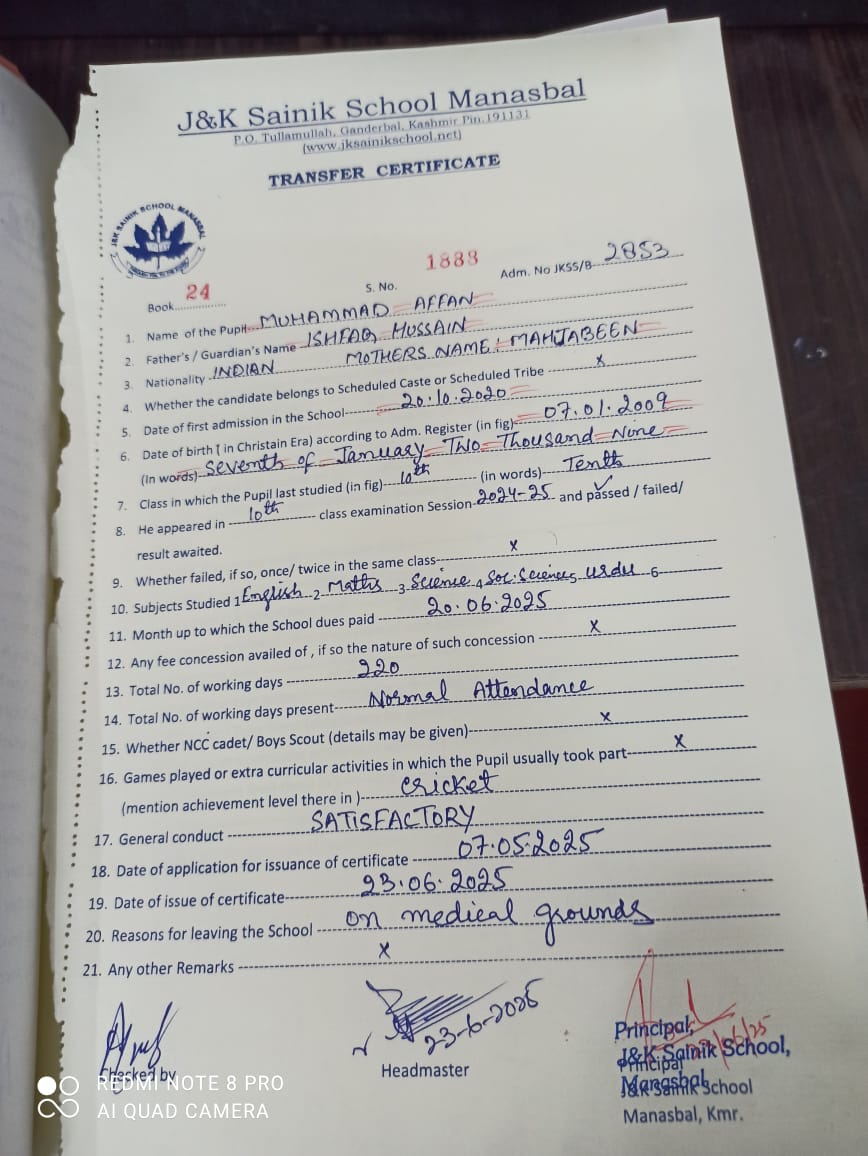 J&K Sainik School Manasbal
P.O. Tullamullah, Ganderbal, Kashmir Pin.191131
(www.jksainikschool.net)
TRANSFER CERTIFICATE
J&K SAINIK SCHOOL MANASBAL
Book 24 S. No. 1888 Adm. No JKSS/B 2853
1. Name of the Pupil MUHAMMAD AFFAN
2. Father's / Guardian's Name ISHFAQ HUSSAIN
3. Nationality INDIAN MOTHERS NAME: MAHJABEEN
4. Whether the candidate belongs to Scheduled Caste or Scheduled Tribe x
5. Date of first admission in the School 20.10.2020
6. Date of birth ( in Christain Era) according to Adm. Register (in fig) 07.01.2009
(In words) Seventh of January Two Thousand None
7. Class in which the Pupil last studied (in fig) 10th (in words) Tenth
8. He appeared in 10th class examination Session 2024-25 and passed / failed/
result awaited.
9. Whether failed, if so, once/ twice in the same class x
10. Subjects Studied 1 English 2 Maths 3 Science 4 Soc. Science 5 Urdu 6
11. Month up to which the School dues paid 20.06.2025
12. Any fee concession availed of , if so the nature of such concession x
13. Total No. of working days 220
14. Total No. of working days present Normal Attendance
15. Whether NCC cadet/ Boys Scout (details may be given) x
16. Games played or extra curricular activities in which the Pupil usually took part x
(mention achievement level there in ) cricket
17. General conduct SATISFACTORY
18. Date of application for issuance of certificate 07.05.2025
19. Date of issue of certificate 23.06.2025
20. Reasons for leaving the School on medical grounds
21. Any other Remarks x
23-6-2025
Checked by Headmaster Principal,
J&K Sainik School,
Manasbal
Principal
J&K Sainik School
Manasbal, Kmr.
REDMI NOTE 8 PRO
AI QUAD CAMERA